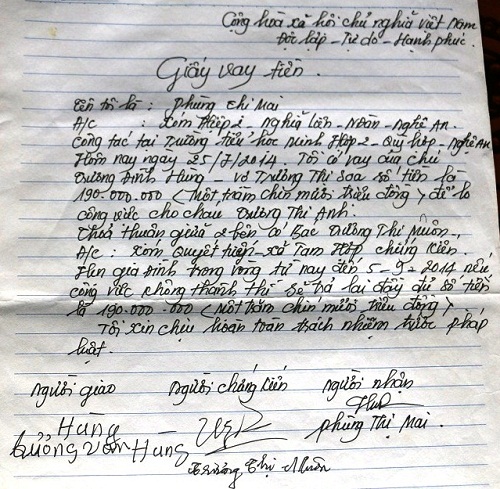 Cộng hòa xã hội chủ nghĩa việt Nam
Độc lập - Tự do - Hạnh phúc.
Giấy vay tiền.
Tên tôi là : Phùng Thị Mai
A/c : Xóm Hiệp 2 - Nghĩa Liên - Nđàn - Nghệ An.
Công tác tại Trường tiểu học Minh Hợp 2 - Quỳ hợp - Nghệ AN
Hôm nay ngày 25/7/2014. Tôi có vay của chú
Dương Đình Hưng - vợ Trương Thị Soa số tiền là
190.000.000 (Một trăm chín mươi triệu đồng) để lo
công việc cho cháu Dương Thị Anh.
Thoả thuận giữa 2 bên có Bác Dương Thị Muôn,
A/c : Xóm Quyết tiến - xã Tam Hợp chứng kiến.
Hẹn gia đình trong vòng từ nay đến 5-9-2014 nếu
công việc không thành thì sẽ trả lại đầy đủ số tiền
là 190.000.000 (Một trăm chín mươi triệu đồng)
Tôi xin chịu hoàn toàn trách nhiệm trước pháp
luật.
Người giao Người chứng kiến Người nhận
Hùng
Phùng Thị Mai.
văn Hùng
Thị Muôn